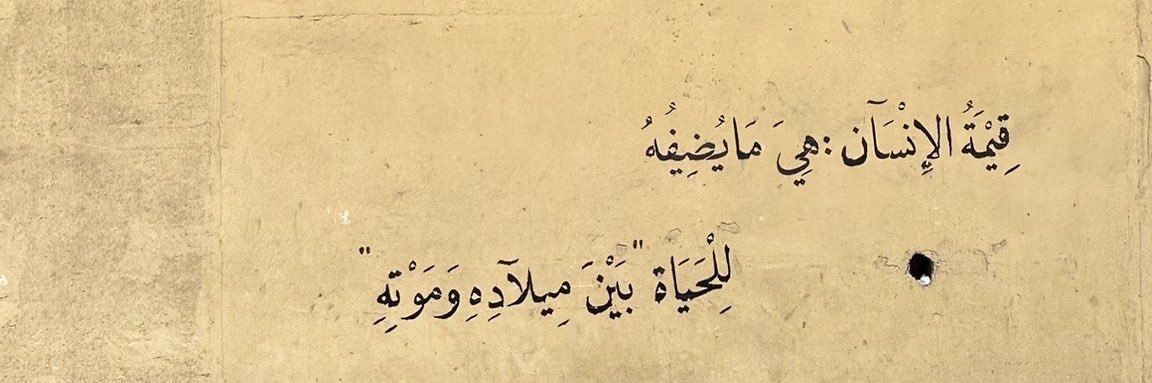 قِيْمَةُ الإِنْسَآن :هِيَ مَا يُضِيفُهُ
لِلْحَيَاة "بَيْنَ مِيلآدِهِ وَمَوْتِهِ"